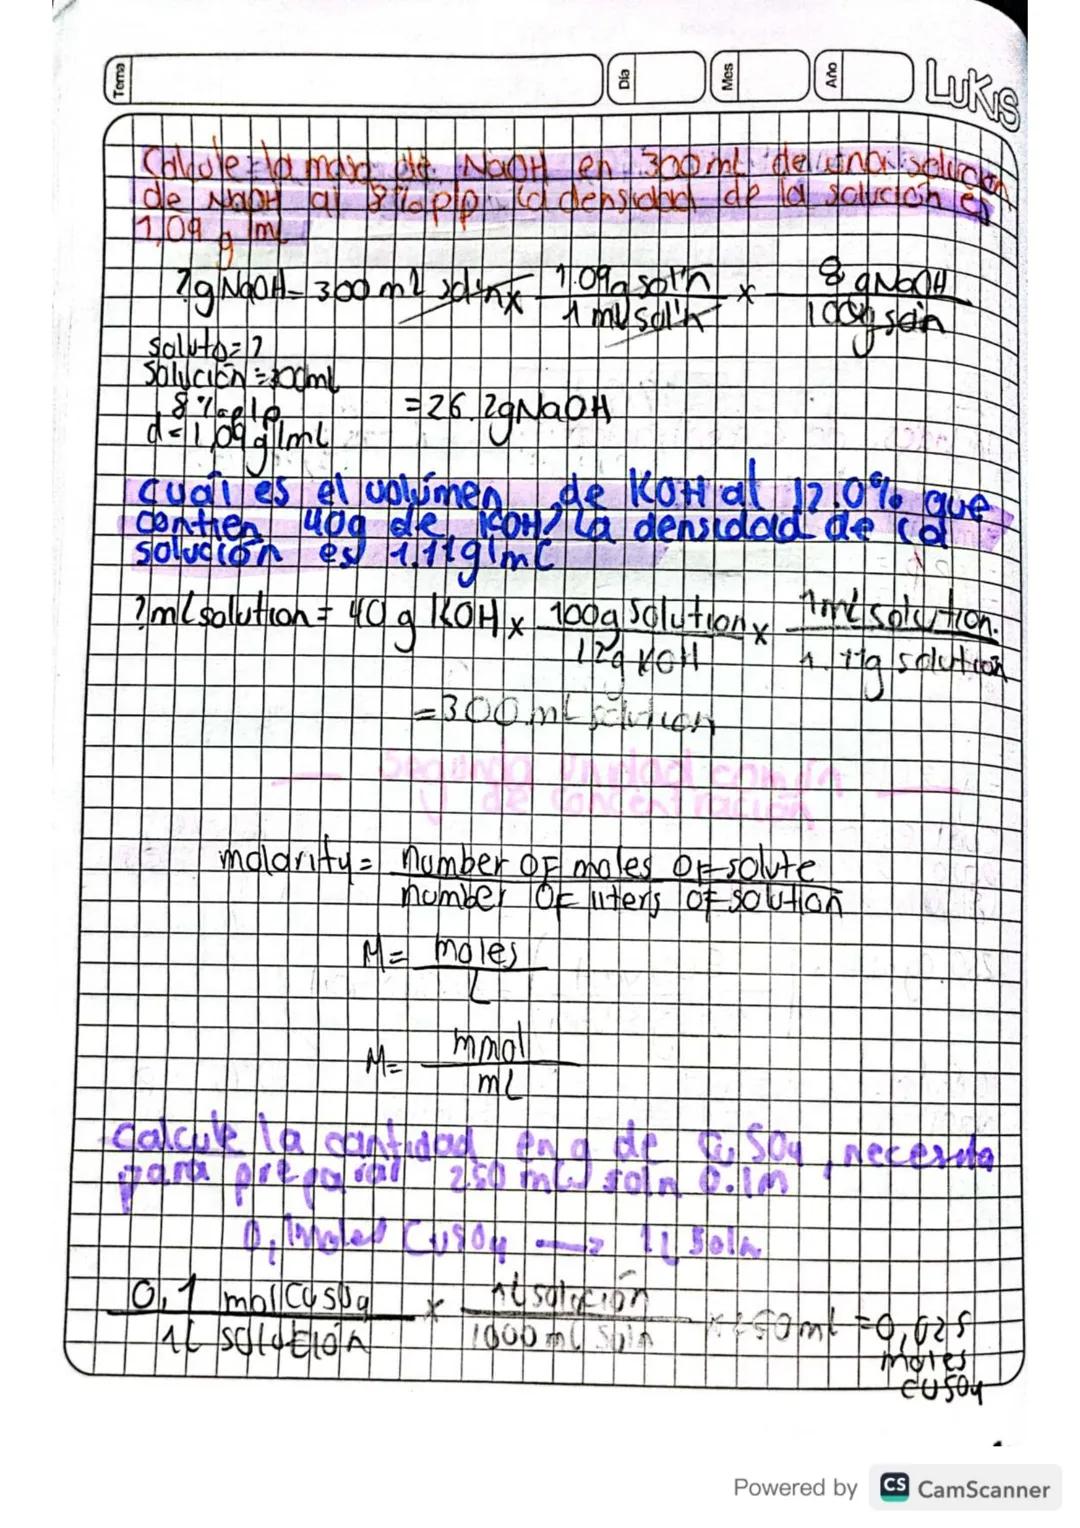 Tema
Día
Mes
Año
LuKis
Calcule la masa de NaOH en 300 ml de una solución
de NaOH al 8% p/p. la densidad de la solución es
1,09 g/ml
?gNaOH= 300 ml sol'n x 1.09g sol'n / 1 ml sol'n x 8 gNaOH / 100g soln
soluto=?
solución=300ml
8% p/p
d=1,09 g/mL
=26.2gNaOH
cual es el volúmen de KOH al 12.0% que
contien 40g de KOH? La densidad de la
solución es 1.11g/mL
?ml solution= 40 g KOH x 100g solution / 12g KOH x 1ml solution. / 1.11g solution
=300 mL solution
segunda unidad común
de concentración
molarity= number OF moles OF solute / number OF liters OF solution
M= moles / L
M= mmol / mL
calcule la cantidad en g de CuSO4, necesita
para preparar 250 mL soln 0.1M
0,1moles CuSO4 → 1L Soln
0,1 mol CuSO4 / 1L solución x 1L solución / 1000 mL Soln x 250ml =0,025
moles
CuSO4
Powered by CS CamScanner